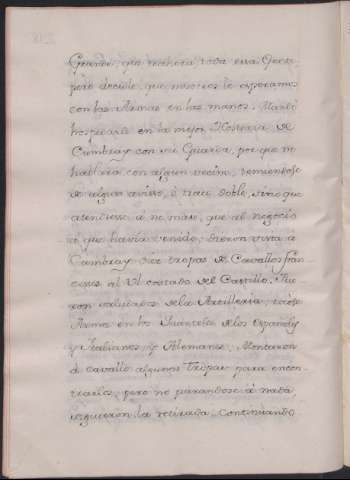 Grande, que mañana toda esta Gente
pero decidle, que nosotros le esperamos
con las Armas en las manos. Mandò
hospedarle en la mejor Hosteria de
Cambray con vna Guardia, por que no
hablara con algun vecino, temiendose
de algun aviso, ò trato doble, sino que
atendiesse à no mas, que al negocio
à que havia venido; dieron vista à
Cambray diez tropas de Cavallos fran-
ceses al vl costado del Castillo. Fue-
ron saludados de la Artilleria; tocose
Arma en los Quarteles de los Españoles
y Italianos, y Alemanes. Montaron
à cavallo algunas Tropas para encon-
trarlos, pero no parandose à nada,
siguieron la retirada. Continuando